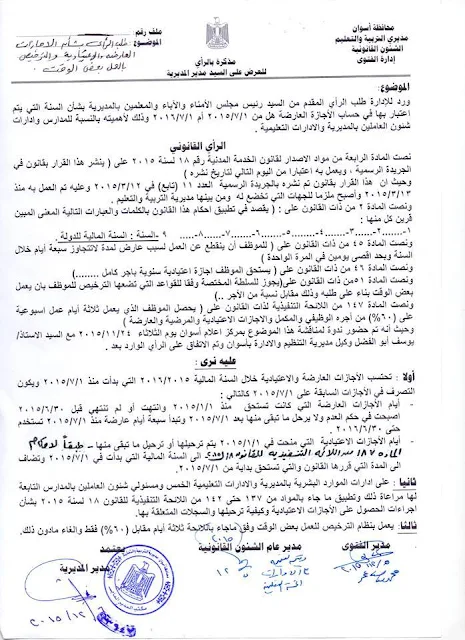 محافظة أسوان
مديرى التربية والتعليم
الشئون القانونية
إدارة الفتوى
ملف رقم
الموضوع:
طلب الرأى بشأن الاجازات
العارضة والاعتيادية والترخيص
بالعمل بعض الوقت
مذكرة بالرأى
للعرض على السيد مدير المديرية
الموضوع:
ورد للإدارة طلب الرأى المقدم من السيد رئيس مجلس الأمناء والآباء والمعلمين بالمديرية بشأن السنة التي يتم
اعتبار بها في حساب الأجازة العارضة هل من ٢٠١٥/٧/١ أم ٢٠١٦/٧/١ وذلك لأهميته بالنسبة للمدارس وادارات
شئون العاملين بالمديرية والادارات التعليمية .
الرأي القانوني
نصت المادة الرابعة من مواد الاصدار لقانون الخدمة المدنية رقم ١٨ لسنة ٢٠١٥ على ( ينشر هذا القرار بقانون في
الجريدة الرسمية ، ويعمل به اعتبارا من اليوم التالي لتاريخ نشره )
وحيث ان هذا القرار بقانون تم نشره بالجريدة الرسمية العدد ١١ (تابع) في ٢٠١٥/٣/١٢ وعليه تم العمل به منذ
٢٠١٥/٣/١٣ وأصبح ملزما للجهات التي تخضع له ومن بينها مديرية التربية والتعليم .
ونصت المادة ٢ من ذات القانون على : ( يقصد في تطبيق احكام هذا القانون بالكلمات والعبارات التالية المعنى المبين
قرين كل منها :
١-......٢-......٣-......٤-......٥-......٦-......٧-......٨-...... ٩- السنة : السنة المالية للدولة .
ونصت المادة ٤٥ من ذات القانون على ( للموظف أن ينقطع عن العمل لسبب عارض لمدة لاتتجاوز سبعة أيام خلال
السنة وبحد اقصى يومين في المرة الواحدة )
ونصت المادة ٤٦ من ذات القانون على ( يستحق الموظف اجازة اعتيادية سنوية باجر كامل ........)
ونصت المادة ٥١من ذات القانون على(يجوز للسلطة المختصة وفقا للقواعد التي تضعها الترخيص للموظف بان يعمل
بعض الوقت بناء على طلبه وذلك مقابل نسبة من الأجر ..)
ونصت المادة ١٤٧ من اللائحة التنفيذية لذات القانون على ( يحصل الموظف الذي يعمل ثلاثة أيام عمل اسبوعية
على (٦٠%) من أجره الوظيفي والمكمل والاجازات الاعتيادية والمرضية والعارضة )
وحيث أنه تم حضور ندوة لمناقشة هذا الموضوع بمركز اعلام أسوان يوم الثلاثاء ٢٠١٥/١١/٢٤ مع السيد الاستاذ/
يوسف أبو الفضل وكيل مديرية التنظيم والادارة بأسوان وتم الاتفاق على الرأي الوارد بعد .
عليه نرى :
أولا : تحتسب الأجازات العارضة والاعتيادية خلال السنة المالية ٢٠١٦/٢٠١٥ التي بدأت منذ ٢٠١٥/٧/١ ويكون
التصرف في الأجازات السابقة على ٢٠١٥/٧/١ كالتالي:
- أيام الأجازات العارضة التي كانت تستحق منذ ٢٠١٥/١/١ وانتهت أو لم تنتهي قبل ٢٠١٥/٦/٣٠
اصبحت في حكم العدم ولا يرحل ما تبقى منها بعد ٢٠١٥/٧/١ وتبدأ سبعة أيام عارضة منذ ٢٠١٥/٧/١ تستخدم
حتى ٢٠١٦/٦/٣٠ .
- أيام الأجازات الاعتيادية التي منحت في ٢٠١٥/١/١ يتم ترحيلها أو ترحيل ما تبقى منها - طبقا لاحكام
المادة ١٨٧ من اللائحة التنفيذية للقانون ١٨ لسنة ٢٠١٥ الى السنة المالية التي بدأت في ٢٠١٥/٧/١ وتضاف
الى المدة التي قررها القانون والتي تستحق بداية من ٢٠١٥/٧/١ .
ثانيا : على ادارات الموارد البشرية بالمديرية والادارات التعليمية الخمس ومسئولي شئون العاملين بالمدارس التابعة
لها مراعاة ذلك وتطبيق ما جاء بالمواد من ١٣٧ حتى ١٤٢ من اللائحة التنفيذية للقانون ١٨ لسنة ٢٠١٥ بشأن
اجراءات الحصول على الأجازات الاعتيادية وكيفية ترحيلها والسجلات المتعلقة بها.
ثالثا: يعمل بنظام الترخيص للعمل بعض الوقت وفق ماجاء باللائحة ثلاثة أيام مقابل (٦٠%) فقط والغاء مادون ذلك.
مدير الفتوى
مدير عام الشئون القانونية
يعتمد
مدير المديرية